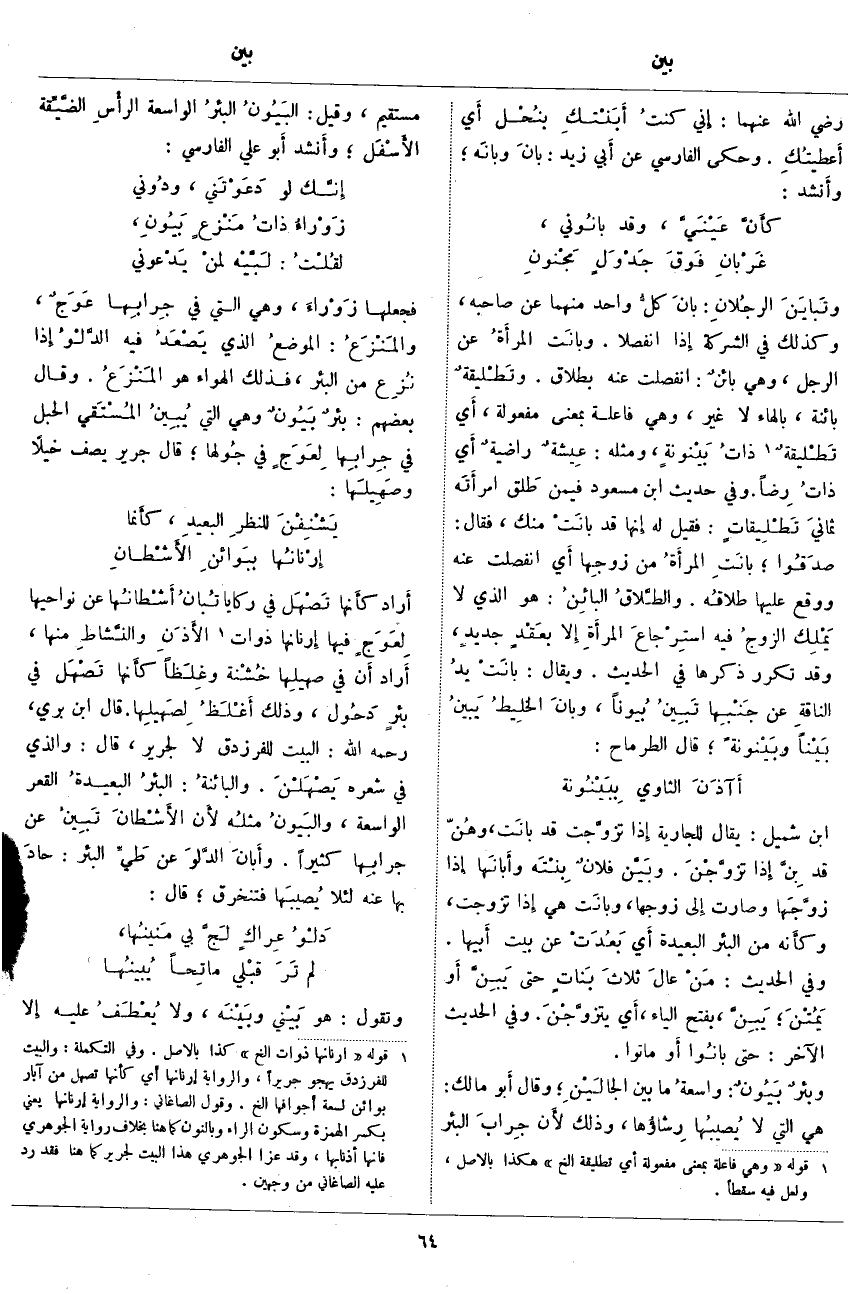 بين
بين
رضي الله عنهما : إني كنتُ أَبَنْتكِ بنُحْل أَي
أَعطيتُكِ . وحكى الفارسي عن أَبي زيد : بانَ وبانَه ؛
وأَنشد :
كأَنَّ عَيْنَيَّ ، وقد بانُوني ،
غَرْبانِ فَوقَ جَدْوَلٍ مَجْنونِ
وتبايَنَ الرجُلانِ : بانَ كلُّ واحد منهما عن صاحبه ،
وكذلك في الشركة إذا انفصلا . وبانَت المرأَةُ عن
الرجل ، وهي بائنٌ : انفصلت عنه بطلاق . وتَطْليقةٌ
بائنة ، بالهاء لا غير ، وهي فاعلة بمعنى مفعولة ، أَي
تَطْليقةٌ١ ذاتُ بَيْنونةٍ ، ومثله : عِيشةٌ راضيةٌ أَي
ذاتُ رِضاً . وفي حديث ابن مسعود فيمن طَلق امرأَتَه
ثمانيَ تَطْلِيقاتٍ : فقيل له إنها قد بانَتْ منك ، فقال :
صدَقُوا ؛ بانَتِ المرأَةُ من زوجِها أَي انفصلت عنه
ووقع عليها طلاقُه . والطَّلاقُ البائِنُ : هو الذي لا
يَمْلِك الزوجُ فيه استِرْجاعَ المرأَةِ إلا بعَقْدٍ جديدٍ ،
وقد تكرر ذكرها في الحديث . ويقال : بانَتْ يدُ
الناقةِ عن جَنْبِها تَبِينُ بُيوناً ، وبانَ الخليطُ يَبينُ
بَيْناً وبَيْنونةً ؛ قال الطرماح :
أَآذَنَ الثاوي بِبَيْنُونة
ابن شميل : يقال للجارية إذا تزوَّجت قد بانَت ، وهُنّ
قد بِنَّ إذا تزوَّجْنَ . وبَيَّن فلانٌ بِنْتَه وأَبانَها إذا
زوَّجَها وصارت إلى زوجها ، وبانَت هي إذا تزوجت ،
وكأَنه من البئر البعيدة أَي بَعُدَتْ عن بيت أَبيها .
وفي الحديث : مَنْ عالَ ثلاثَ بَناتٍ حتى يَبِنَّ أَو
يَمُتْنَ ؛ يَبِنَّ ، بفتح الياء ، أَي يتزوَّجْنَ . وفي الحديث
الآخر : حتى بانُوا أَو ماتوا .
وبئرٌ بَيُونٌ : واسعةُ ما بين الجالَيْنِ ؛ وقال أَبو مالك :
هي التي لا يُصيبُها رِشاؤُها ، وذلك لأَن جِرابَ البئر
١ قوله « وهي فاعلة بمعنى مفعولة أي تطليقة الخ » هكذا بالاصل ،
ولعل فيه سقطاً .
مستقيم ، وقيل : البَيُونُ البئرُ الواسعة الرأْسِ الضَّيِّقة
الأَسْفَل ؛ وأَنشد أَبو علي الفارسي :
إنَّك لو دَعَوْتَني ، ودُوني
زَوْراءُ ذاتُ مَنْزعٍ بَيُونِ ،
لقُلْتُ : لَبَّيْه لمنْ يَدْعوني
فجعلها زَوْراءَ ، وهي التي في جِرابِها عَوَجٌ ،
والمَنْزَعُ : الموضعُ الذي يَصْعَدُ فيه الدَّلْوُ إذا
نُزِع من البئر ، فذلك الهواء هو المَنْزَعُ . وقال
بعضهم : بئرٌ بَيُونٌ وهي التي يُبِينُ المُسْتَقي الحبل
في جِرابِها لِعَوَجٍ في جُولها ؛ قال جرير يصف خيلًا
وصَهِيلَها :
يَشْنِفْنَ للنظرِ البعيد ، كأَنما
إرْنانُها ببَوائنِ الأَشْطانِ
أَراد كأَنها تَصْهَل في ركايا تُبانُ أَشْطانُها عن نواحيها
لِعَوَجٍ فيها إرنانها ذوات١ الأَذنِ والنَّشاطِ منها ،
أَراد أَن في صهيلِها خُشْنة وغِلَظاً كأَنها تَصْهَل في
بئرٍ دَحُول ، وذلك أَغْلَظُ لِصَهيلِها . قال ابن بري ،
رحمه الله : البيت للفرزدق لا لجرير ، قال : والذي
في شعره يَصْهَلْنَ . والبائنةُ : البئرُ البعيدةُ القعر
الواسعة ، والبَيونُ مثلُه لأَن الأَشْطانَ تَبِينُ عن
جرابِها كثيراً . وأَبانَ الدَّلوَ عن طَيِّ البئر : حادَ
بها عنه لئلا يُصيبَها فتنخرق ؛ قال :
دَلْوُ عِراكٍ لَجَّ بي مَنينُها ،
لم تَرَ قَبْلي ماتِحاً يُبينُها
وتقول : هو بَيْني وبَيْنَه ، ولا يُعْطَفُ عليه إلا
١ قوله « ارنانها ذوات الخ » كذا بالاصل . وفي التكملة : والبيت
للفرزدق يهجو جريراً ، والرواية إرنانها أي كأنها تصهل من آبار
بوائن لسعة أجوافها الخ . وقول الصاغاني : والرواية إرنانها يعني
بكسر الهمزة وسكون الراء وبالنون كما هنا بخلاف رواية الجوهري
فانها أذنابها ، وقد عزا الجوهري هذا البيت لجرير كما هنا فقد رد
عليه الصاغاني من وجهين .
٦٤